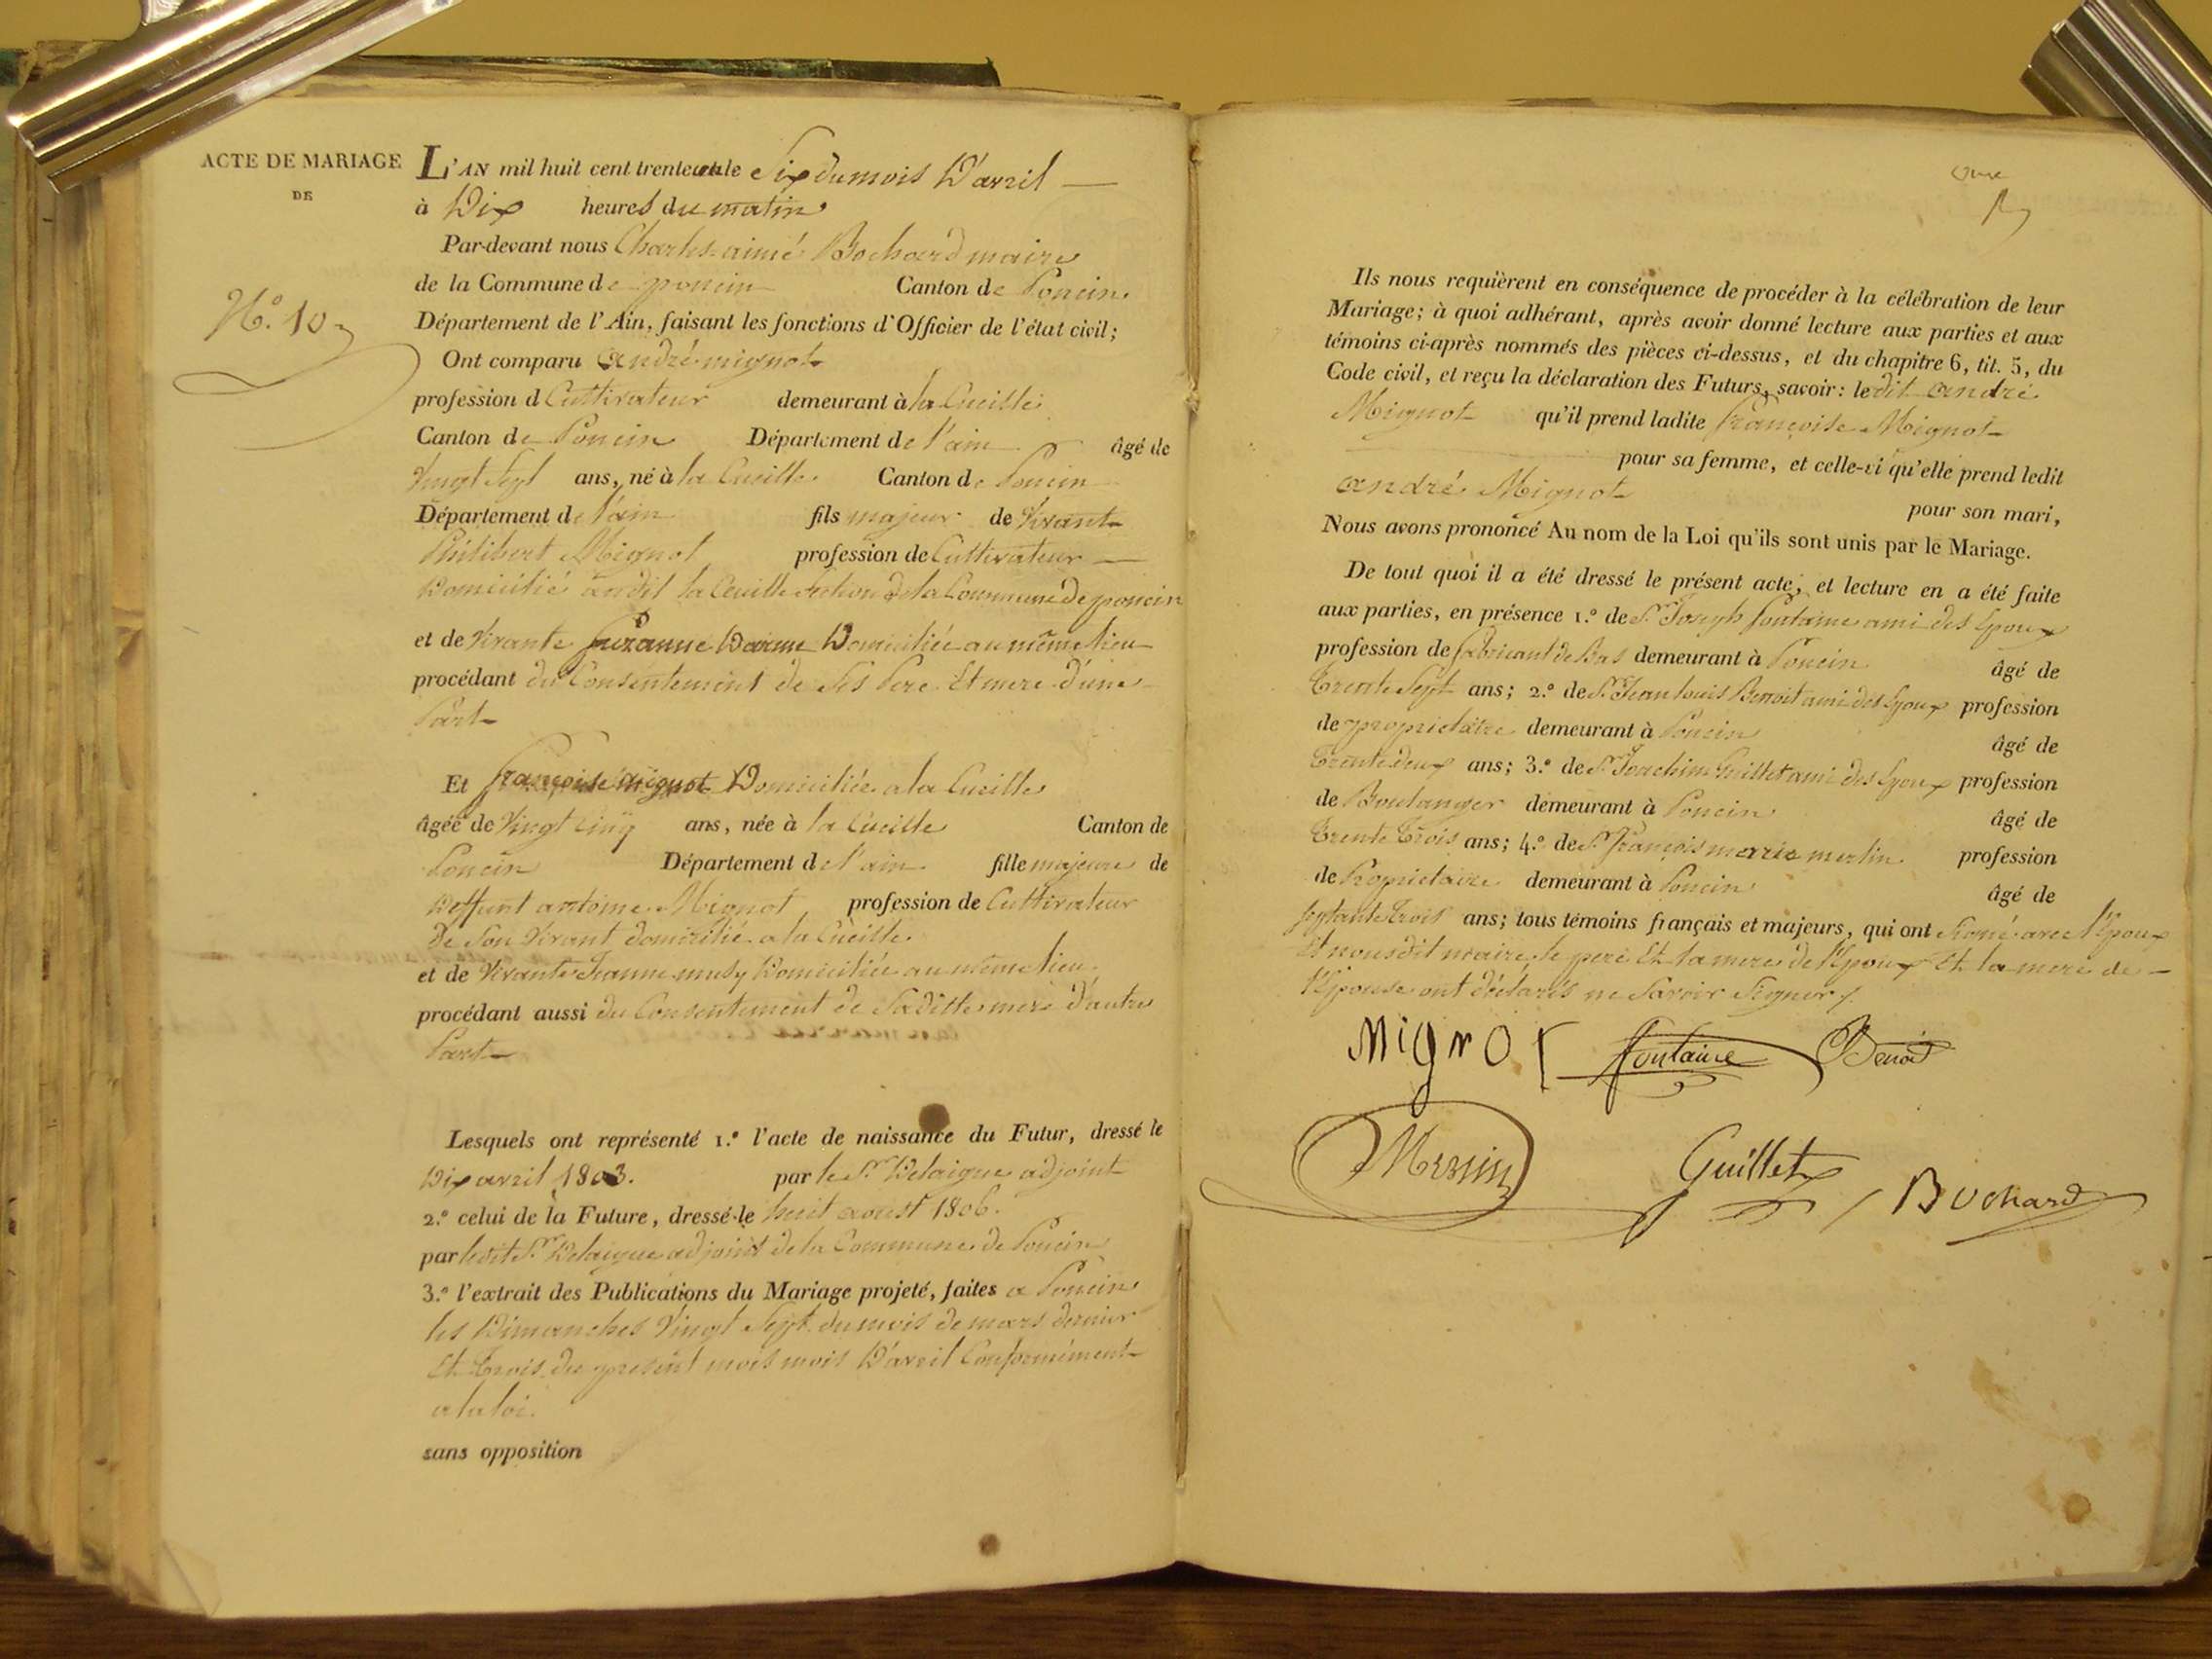 ACTE DE MARIAGE
DE
N.º 10
L'AN mil huit cent trente un le Six du mois D'avril
à Dix heures du matin
Par-devant nous Charles aimé Bochard maire
de la Commune de poncin Canton de Poncin
Département de l'Ain, faisant les fonctions d'Officier de l'état civil;
Ont comparu andré mignot
profession d Cultivateur demeurant à la Cueille
Canton de Poncin Département de l'ain âgé de
Vingt Sept ans, né à la Cueille Canton de Poncin
Département de l'ain fils majeur de Vivant
Philibert Mignot profession de Cultivateur
Domicilié audit la Cueille Section de la Commune de poncin
et de Vivante Suzanne Domiciliée au même lieu
procédant du Consentement de Ses Pere Et mere d'une
Part
Et françoise mignot Domiciliée a la Cueille
âgée de Vingt cinq ans, née à la Cueille Canton de
Poncin Département de l'ain fille majeure de
Deffunt antoine Mignot profession de Cultivateur
De Son Vivant domicilié a la Cueille
et de Vivante Jeanne musy Domiciliée au même lieu
procédant aussi du Consentement de Sadite mere d'autre
Part
Lesquels ont représenté 1.º l'acte de naissance du Futur, dressé le
Dix avril 1803. par le Sr Delaigue adjoint
2.º celui de la Future, dressé le huit aoust 1806.
par ledit Sr Delaigue adjoint de la Commune de Poncin
3.º l'extrait des Publications du Mariage projeté, faites a Poncin
les Dimanches Vingt Sept du mois de mars dernier
Et trois du present mois mois D'avril Conformément
a la loi.
sans opposition
onze
Ils nous requièrent en conséquence de procéder à la célébration de leur
Mariage; à quoi adhérant, après avoir donné lecture aux parties et aux
témoins ci-après nommés des pièces ci-dessus, et du chapitre 6, tit. 5, du
Code civil, et reçu la déclaration des Futurs, savoir: ledit andré
Mignot qu'il prend ladite françoise Mignot
pour sa femme, et celle-ci qu'elle prend ledit
andré Mignot pour son mari,
Nous avons prononcé Au nom de la Loi qu'ils sont unis par le Mariage.
De tout quoi il a été dressé le présent acte, et lecture en a été faite
aux parties, en présence 1.º de Sr Joseph fontaine ami des Epoux
profession de fabricant de Bas demeurant à Poncin âgé de
Trente Sept ans; 2.º de Sr Jean louis Benoit ami des Epoux profession
de proprietaire demeurant à Poncin âgé de
Trente deux ans; 3.º de Sr Joachim Guillet ami des Epoux profession
de Boulanger demeurant à Poncin âgé de
Trente Trois ans; 4.º de Sr françois marie merlin profession
de Proprietaire demeurant à Poncin âgé de
Septante trois ans; tous témoins français et majeurs, qui ont Signé avec l'Epoux
Et nousdit maire, le pere Et la mere de l'Epoux Et la mere de
l'Epouse ont déclarés ne Savoir Signer
Mignot fontaine Benoit
Guillet Bochard